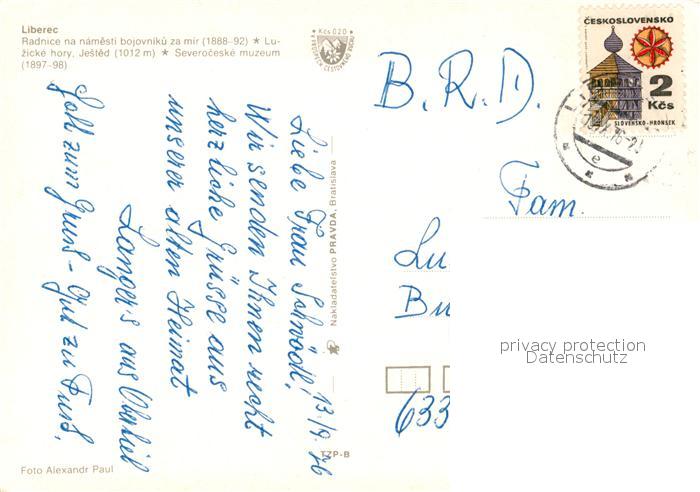 Liberec
Radnice na náměstí bojovníků za mír (1888-92) ★ Lu-
žické hory, Ještěd (1012 m) ★ Severočeské muzeum
(1897-98)
Kčs 0,20
ČESKOSLOVENSKO
2
Kčs
SLOVENSKO-HRONSEK
76-2
e
B. R. D.
Fam.
Lu
Bu
633
privacy protection
Datenschutz
13/9. 76
Liebe Frau Schrödl!
Wir senden Ihnen recht
herzliche Grüsse aus
unserer alten Heimat
Langer's aus
Soll zum Gruß - Gud zu Fuß.
Nakladatelstvo PRAVDA, Bratislava
TZP-B
Foto Alexandr Paul